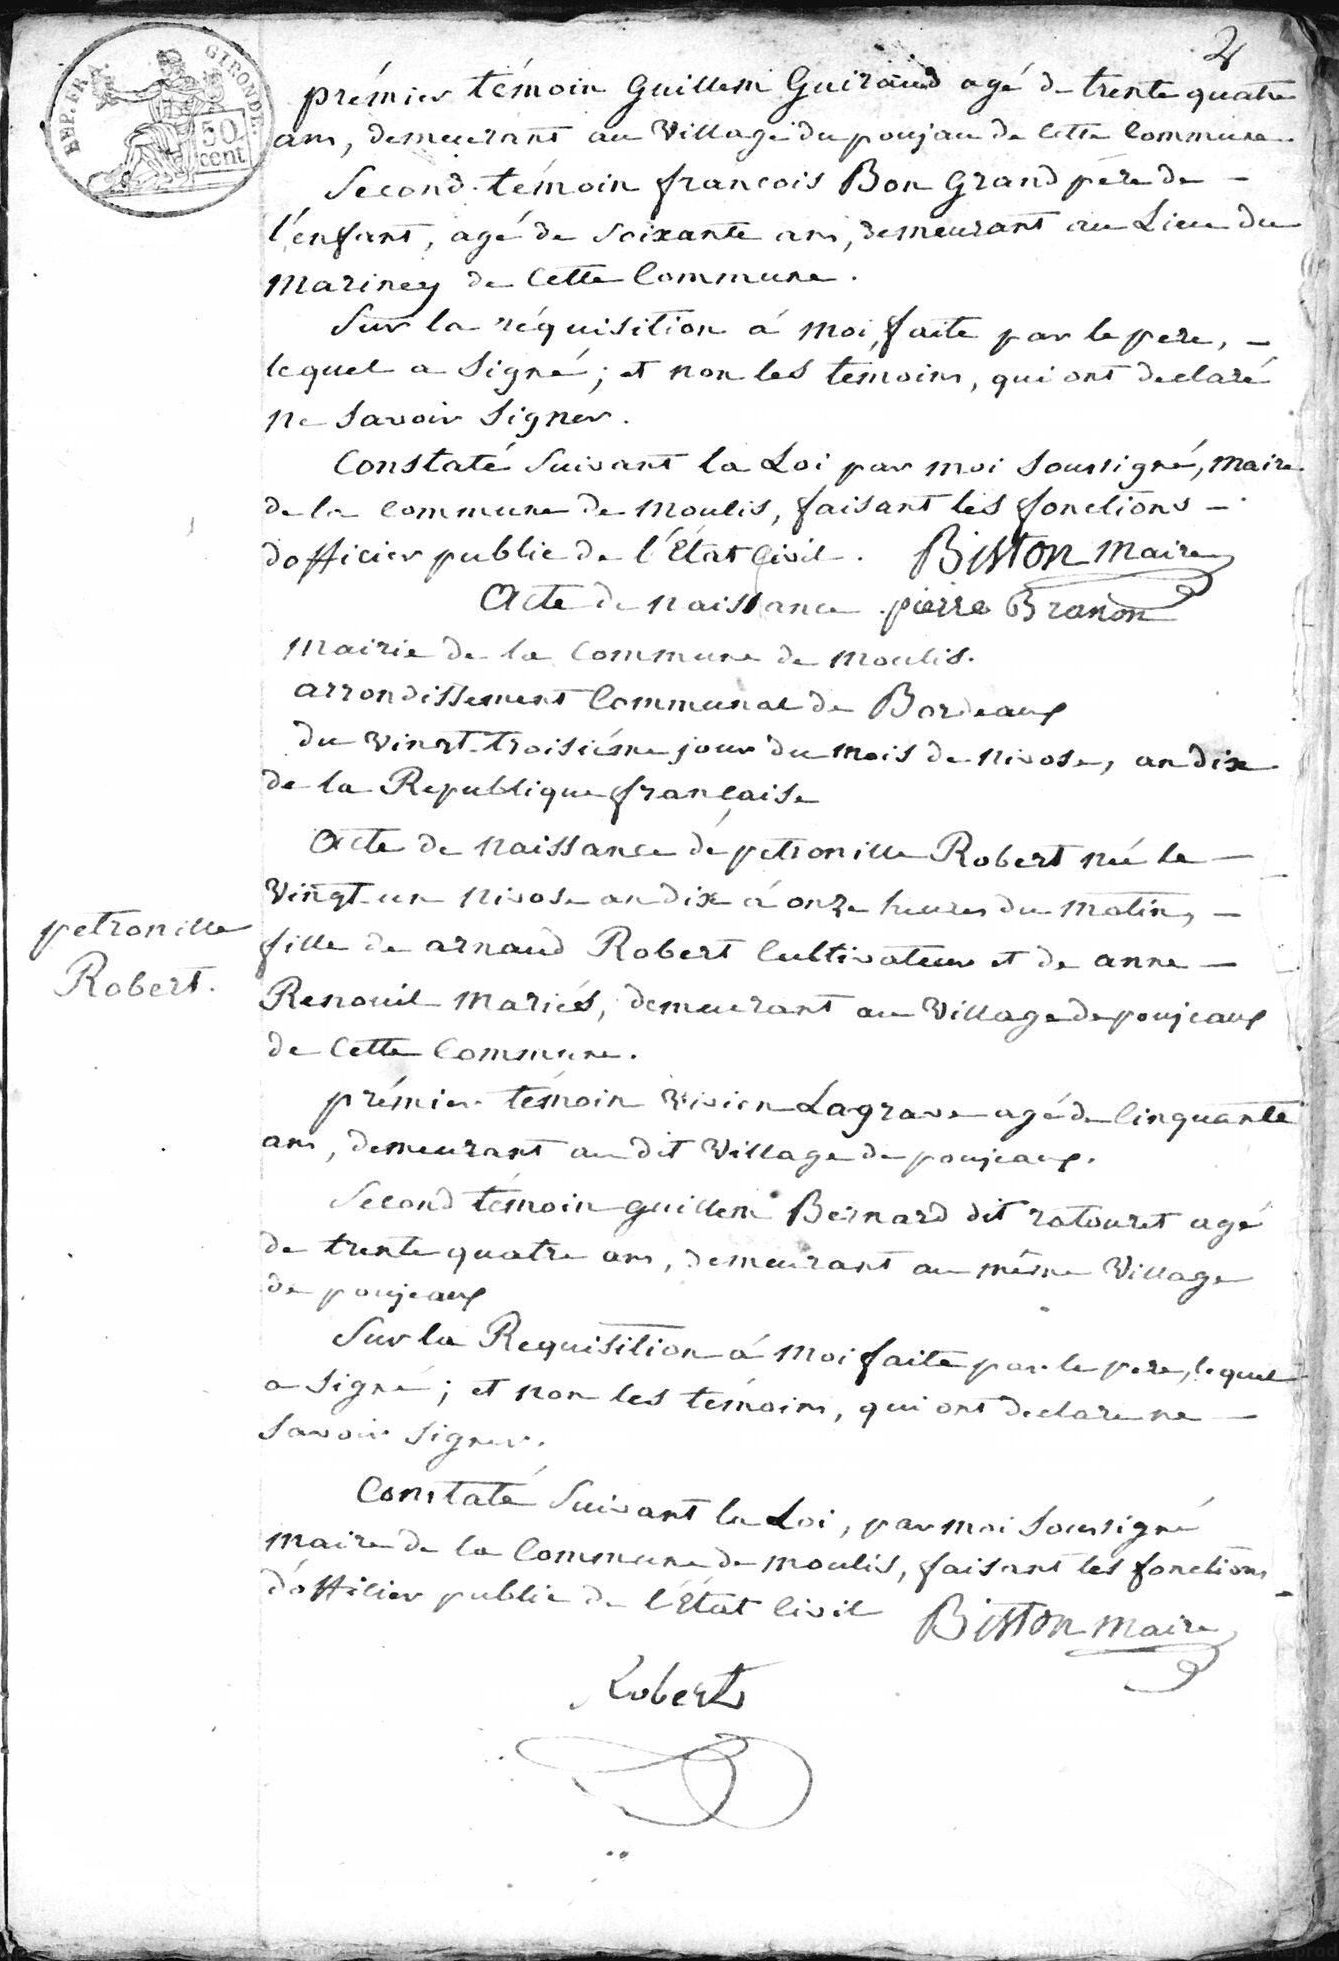 2
REP. FRA. GIRONDE.
50
cent
prémier témoin Guillem Guiraud agé de trente quatre
ans, demeurant au Village du poujau de cette Commune
Second témoin françois Bon Grand pére de -
l'énfant, agé de soixante ans, demeurant au Lieu du
Mariney de Cette Commune.
Sur la réquisition á moi, faite par le pere, -
lequel a Signé; et non les témoins, qui ont declaré
ne Savoir Signer.
Constaté Suivant la Loi par moi Soussigné, maire
de la Commune de Moulis, faisant les fonctions -
d'officier public de l'État Civil. Biston Maire
Acte de naissance pierre Branon
Mairie de la Commune de Moulis.
arrondissement Communal de Bordeaux
du vingt-troisiéme jour du mois de nivose, an dix
de la Republique française
Acte de naissance dé petronille Robert née le -
Vingt-un nivose an dix á onze heures du matin, -
petronille
Robert.
fille de arnaud Robert Cultivateur et de anne -
Renouil mariés, demeurant au Village de poujeaux
de Cette Commune.
prémier témoin Vivien Lagrave agé de Cinquante
ans, demeurant au dit Village de poujeaux.
Second témoin guillem Bernard dit ratouret agé
de trente quatre ans, demeurant au même Village
de poujeaux
Sur la Requisition á Moi faite par le pere, lequel
a Signé; et non les témoins, qui ont declare ne -
Savoir Signer.
Constaté Suivant la Loi, par moi Soussigné
maire de la Commune de moulis, faisant les fonctions
d'officier public de l'État Civil Biston maire
Robert